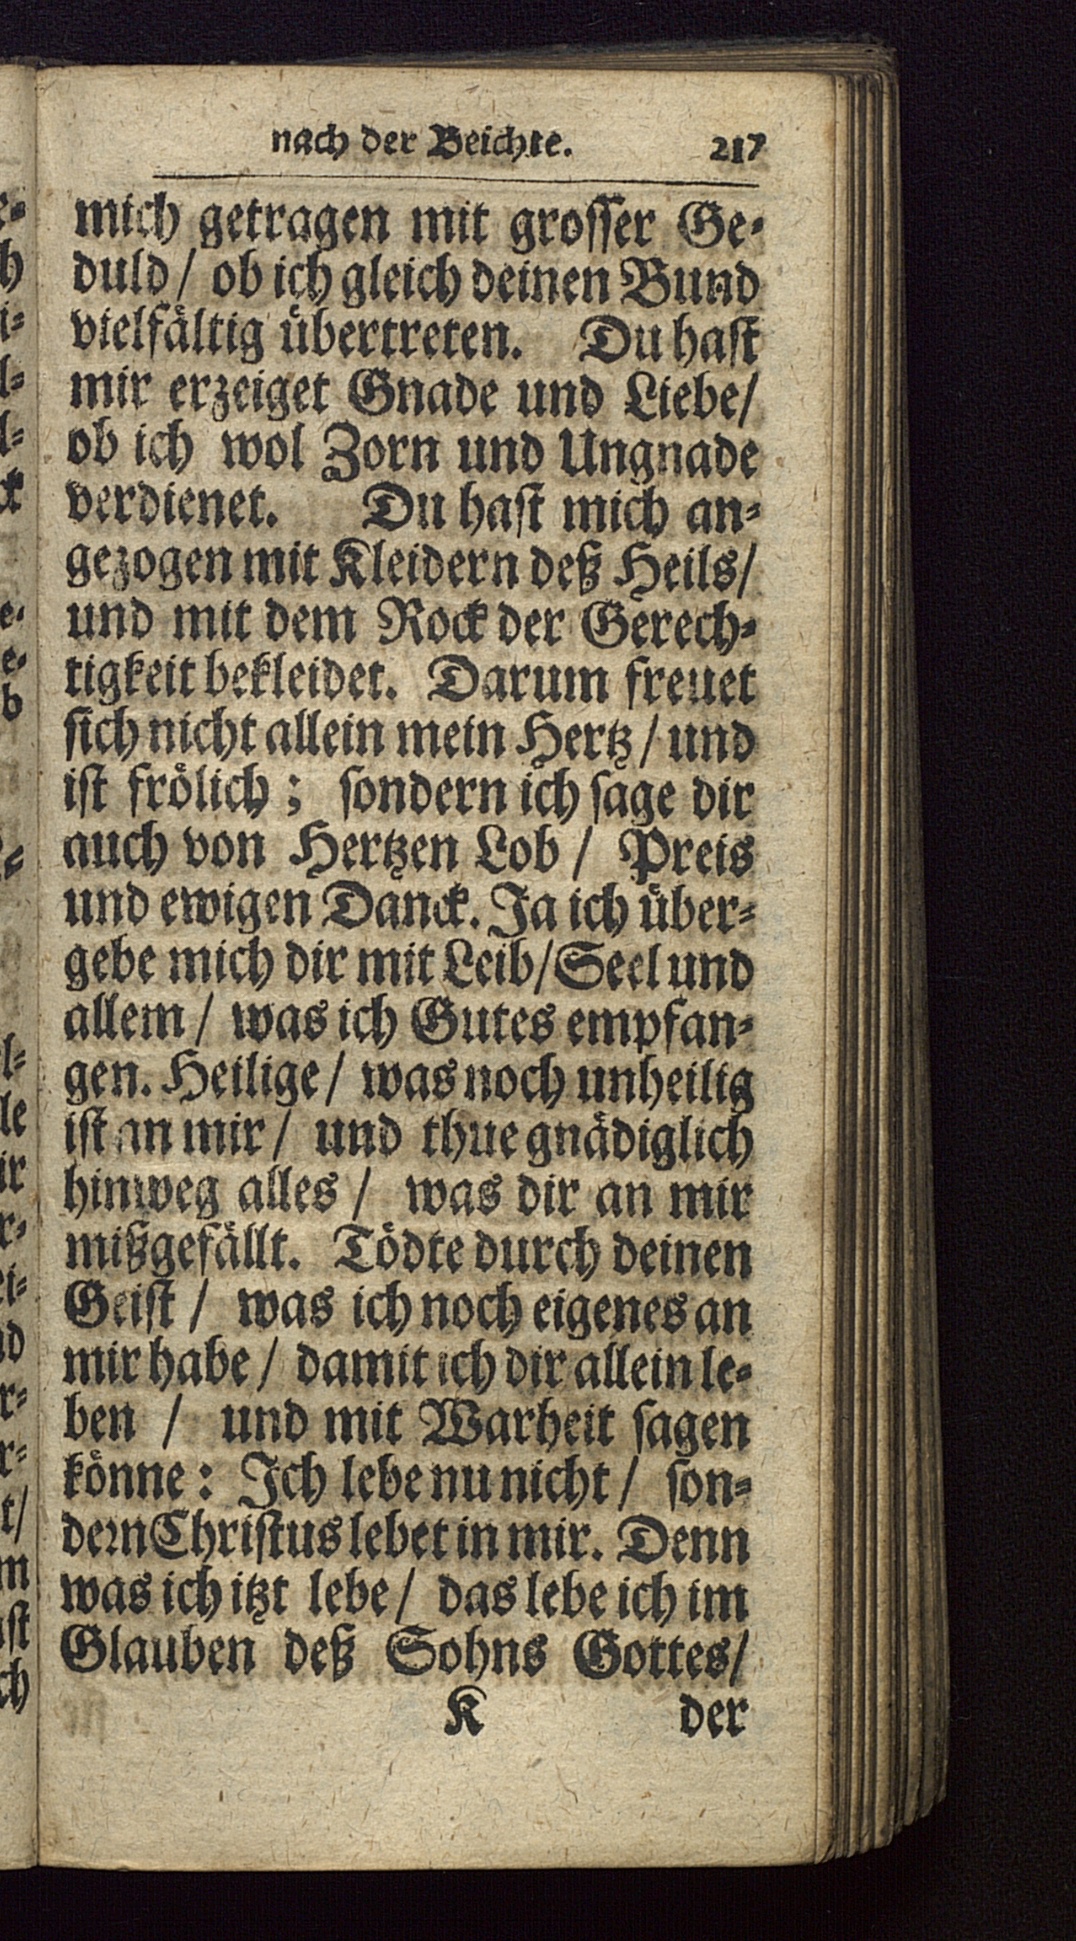 nach der Beichte. 217
mich getragen mit grosser Ge-
duld / ob ich gleich deinen Bund
vielfältig übertreten. Du hast
mir erzeiget Gnade und Liebe /
ob ich wol Zorn und Ungnade
verdienet. Du hast mich an-
gezogen mit Kleidern deß Heils /
und mit dem Rock der Gerech-
tigkeit bekleidet. Darum freuet
sich nicht allein mein Hertz / und
ist frölich ; sondern ich sage dir
auch von Hertzen Lob / Preis
und ewigen Danck. Ja ich über-
gebe mich dir mit Leib / Seel und
allem / was ich Gutes empfan-
gen. Heilige / was noch unheilig
ist an mir / und thue gnädiglich
hinweg alles / was dir an mir
mißgefällt. Tödte durch deinen
Geist / was ich noch eigenes an
mir habe / damit ich dir allein le-
ben / und mit Warheit sagen
könne : Ich lebe nu nicht / son-
dern Christus lebet in mir. Denn
was ich itzt lebe / das lebe ich im
Glauben deß Sohns Gottes /
K der